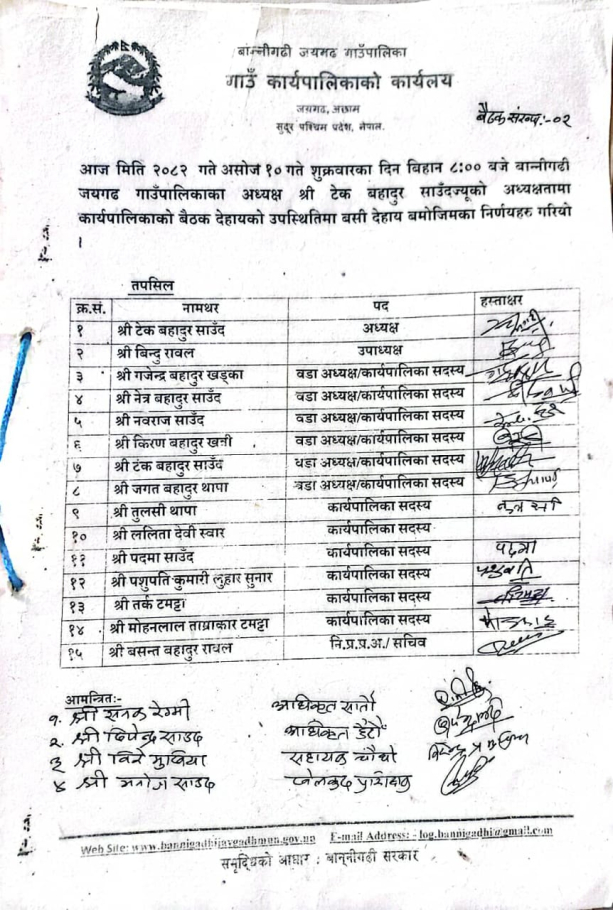 बान्नीगढी जयगढ गाउँपालिका
गाउँ कार्यपालिकाको कार्यलय
जयगढ, अछाम
सुदूर पश्चिम प्रदेश, नेपाल.
बैठक संख्या:-०२
आज मिति २०८२ गते असोज १० गते शुक्रवारका दिन बिहान ८:०० बजे बान्नीगढी
जयगढ गाउँपालिकाका अध्यक्ष श्री टेक बहादुर साउँदज्यूको अध्यक्षतामा
कार्यपालिकाको बैठक देहायको उपस्थितिमा बसी देहाय बमोजिमका निर्णयहरु गरियो
।
तपसिल
क्र.सं. नामथर पद हस्ताक्षर
१ श्री टेक बहादुर साउँद अध्यक्ष
२ श्री बिन्दु रावल उपाध्यक्ष
३ श्री गजेन्द्र बहादुर खड्का वडा अध्यक्ष/कार्यपालिका सदस्य
४ श्री नेत्र बहादुर साउँद वडा अध्यक्ष/कार्यपालिका सदस्य
५ श्री नवराज साउँद वडा अध्यक्ष/कार्यपालिका सदस्य
६ श्री किरण बहादुर खत्री वडा अध्यक्ष/कार्यपालिका सदस्य
७ श्री टंक बहादुर साउँद वडा अध्यक्ष/कार्यपालिका सदस्य
८ श्री जगत बहादुर थापा वडा अध्यक्ष/कार्यपालिका सदस्य
९ श्री तुलसी थापा कार्यपालिका सदस्य
१० श्री ललिता देवी स्वार कार्यपालिका सदस्य
११ श्री पदमा साउँद कार्यपालिका सदस्य पदमा
१२ श्री पशुपति कुमारी लुहार सुनार कार्यपालिका सदस्य
१३ श्री तर्क टमट्टा कार्यपालिका सदस्य
१४ श्री मोहनलाल ताम्राकार टमट्टा कार्यपालिका सदस्य
१५ श्री बसन्त बहादुर रावल नि.प्र.प्र.अ./ सचिव
आमन्त्रित:-
१. श्री रेग्मी अधिकृत सातौ
२. श्री दिपेन्द्र साउद अधिकृत छैटौं
३ श्री विरे मुखिया सहायक चौथो
४ श्री मनोज साउद खेलकुद प्रशिक्षक
Web Site: www.bannigadhijayagadhmun.gov.np E-mail Address: - log.bannigadhi@gmail.com
समृद्धिको आधार : बान्नीगढी सरकार